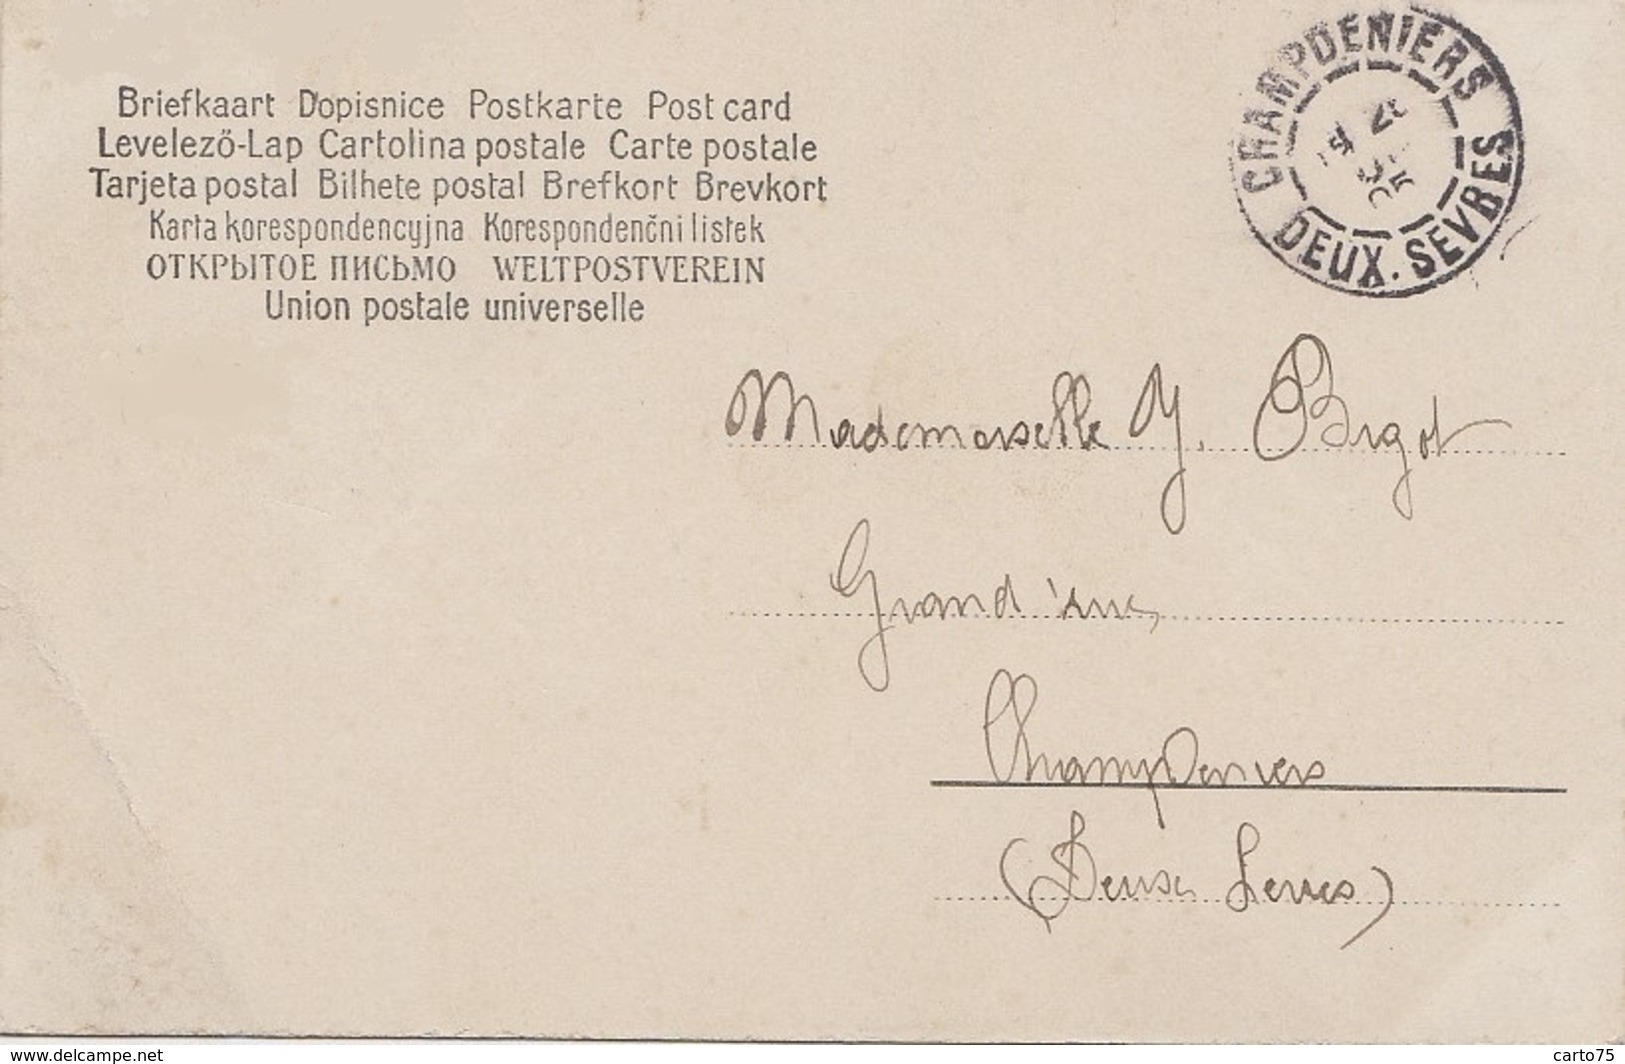 Briefkaart Dopisnice Postkarte Post card
Levelező-Lap Cartolina postale Carte postale
Tarjeta postal Bilhete postal Brefkort Brevkort
Karta korespondencyjna Korespondenční listek
ОТКРЫТОЕ ПИСЬМО WELTPOSTVEREIN
Union postale universelle
CHAMPDENIERS
DEUX.SÈVRES
05
Mademoiselle Y. Bigot
Grand'rue
Champdeniers
(Deux Sevres)
www.delcampe.net
carto75